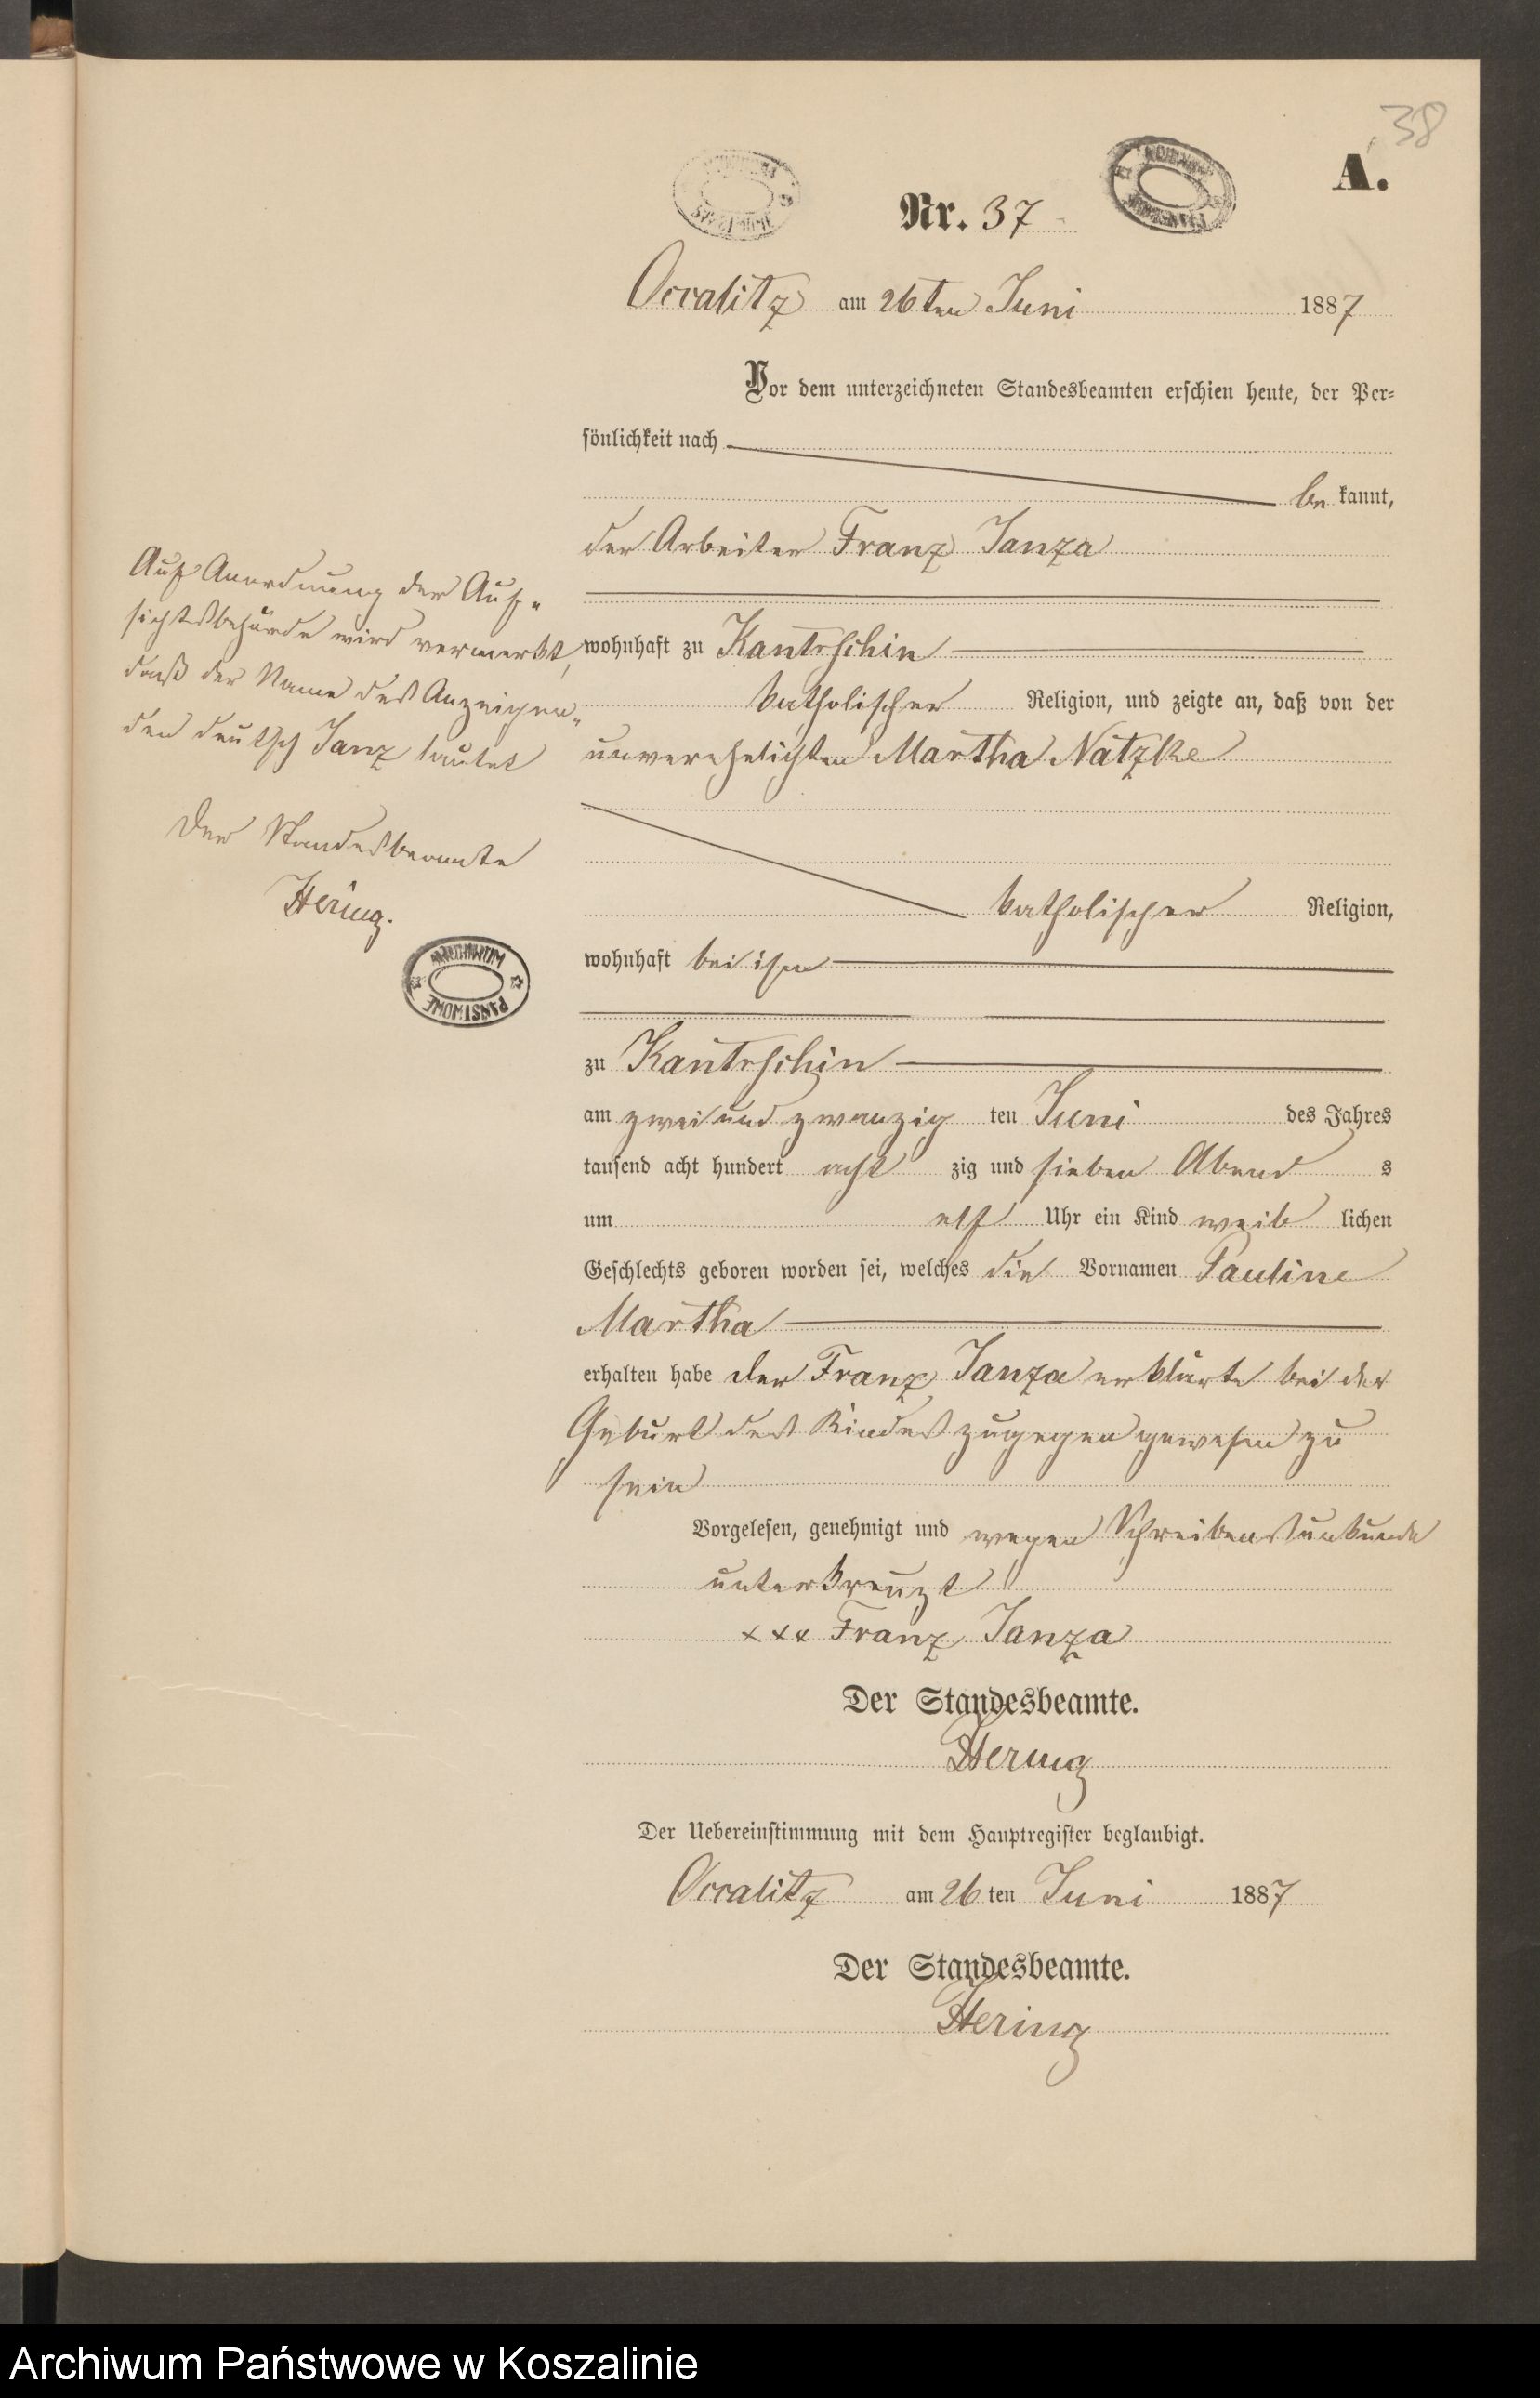 38
A.
Nr. 37
Occalitz am 26ten Juni 1887
Vor dem unterzeichneten Standesbeamten erschien heute, der Per=
sönlichkeit nach
be kannt,
der Arbeiter Franz Janza
wohnhaft zu Kantrschin
katholischer Religion, und zeigte an, daß von der
unverehelichten Martha Natzke
katholischer Religion,
wohnhaft bei ihm
zu Kantrschin
am zwei und zwanzig ten Juni des Jahres
tausend acht hundert acht zig und sieben Abend s
um elf Uhr ein Kind weib lichen
Geschlechts geboren worden sei, welches die Vornamen Pauline
Martha
erhalten habe der Franz Janza erklärte bei der
Geburt des Kindes zugegen gewesen zu
sein
Vorgelesen, genehmigt und wegen Schreibensunkunde
unterkreuzt
xxx Franz Janza
Der Standesbeamte.
Hering
Der Uebereinstimmung mit dem Hauptregister beglaubigt.
Occalitz am 26 ten Juni 1887
Der Standesbeamte.
Hering
Auf Anordnung der Auf„
sichtsbehörde wird vermerkt,
daß der Name des Anzeigen„
den deutsch Janz lautet
Der Standesbeamte
Hering.
ARCHIWUM
PAŃSTWOWE
Archiwum Państwowe w Koszalinie